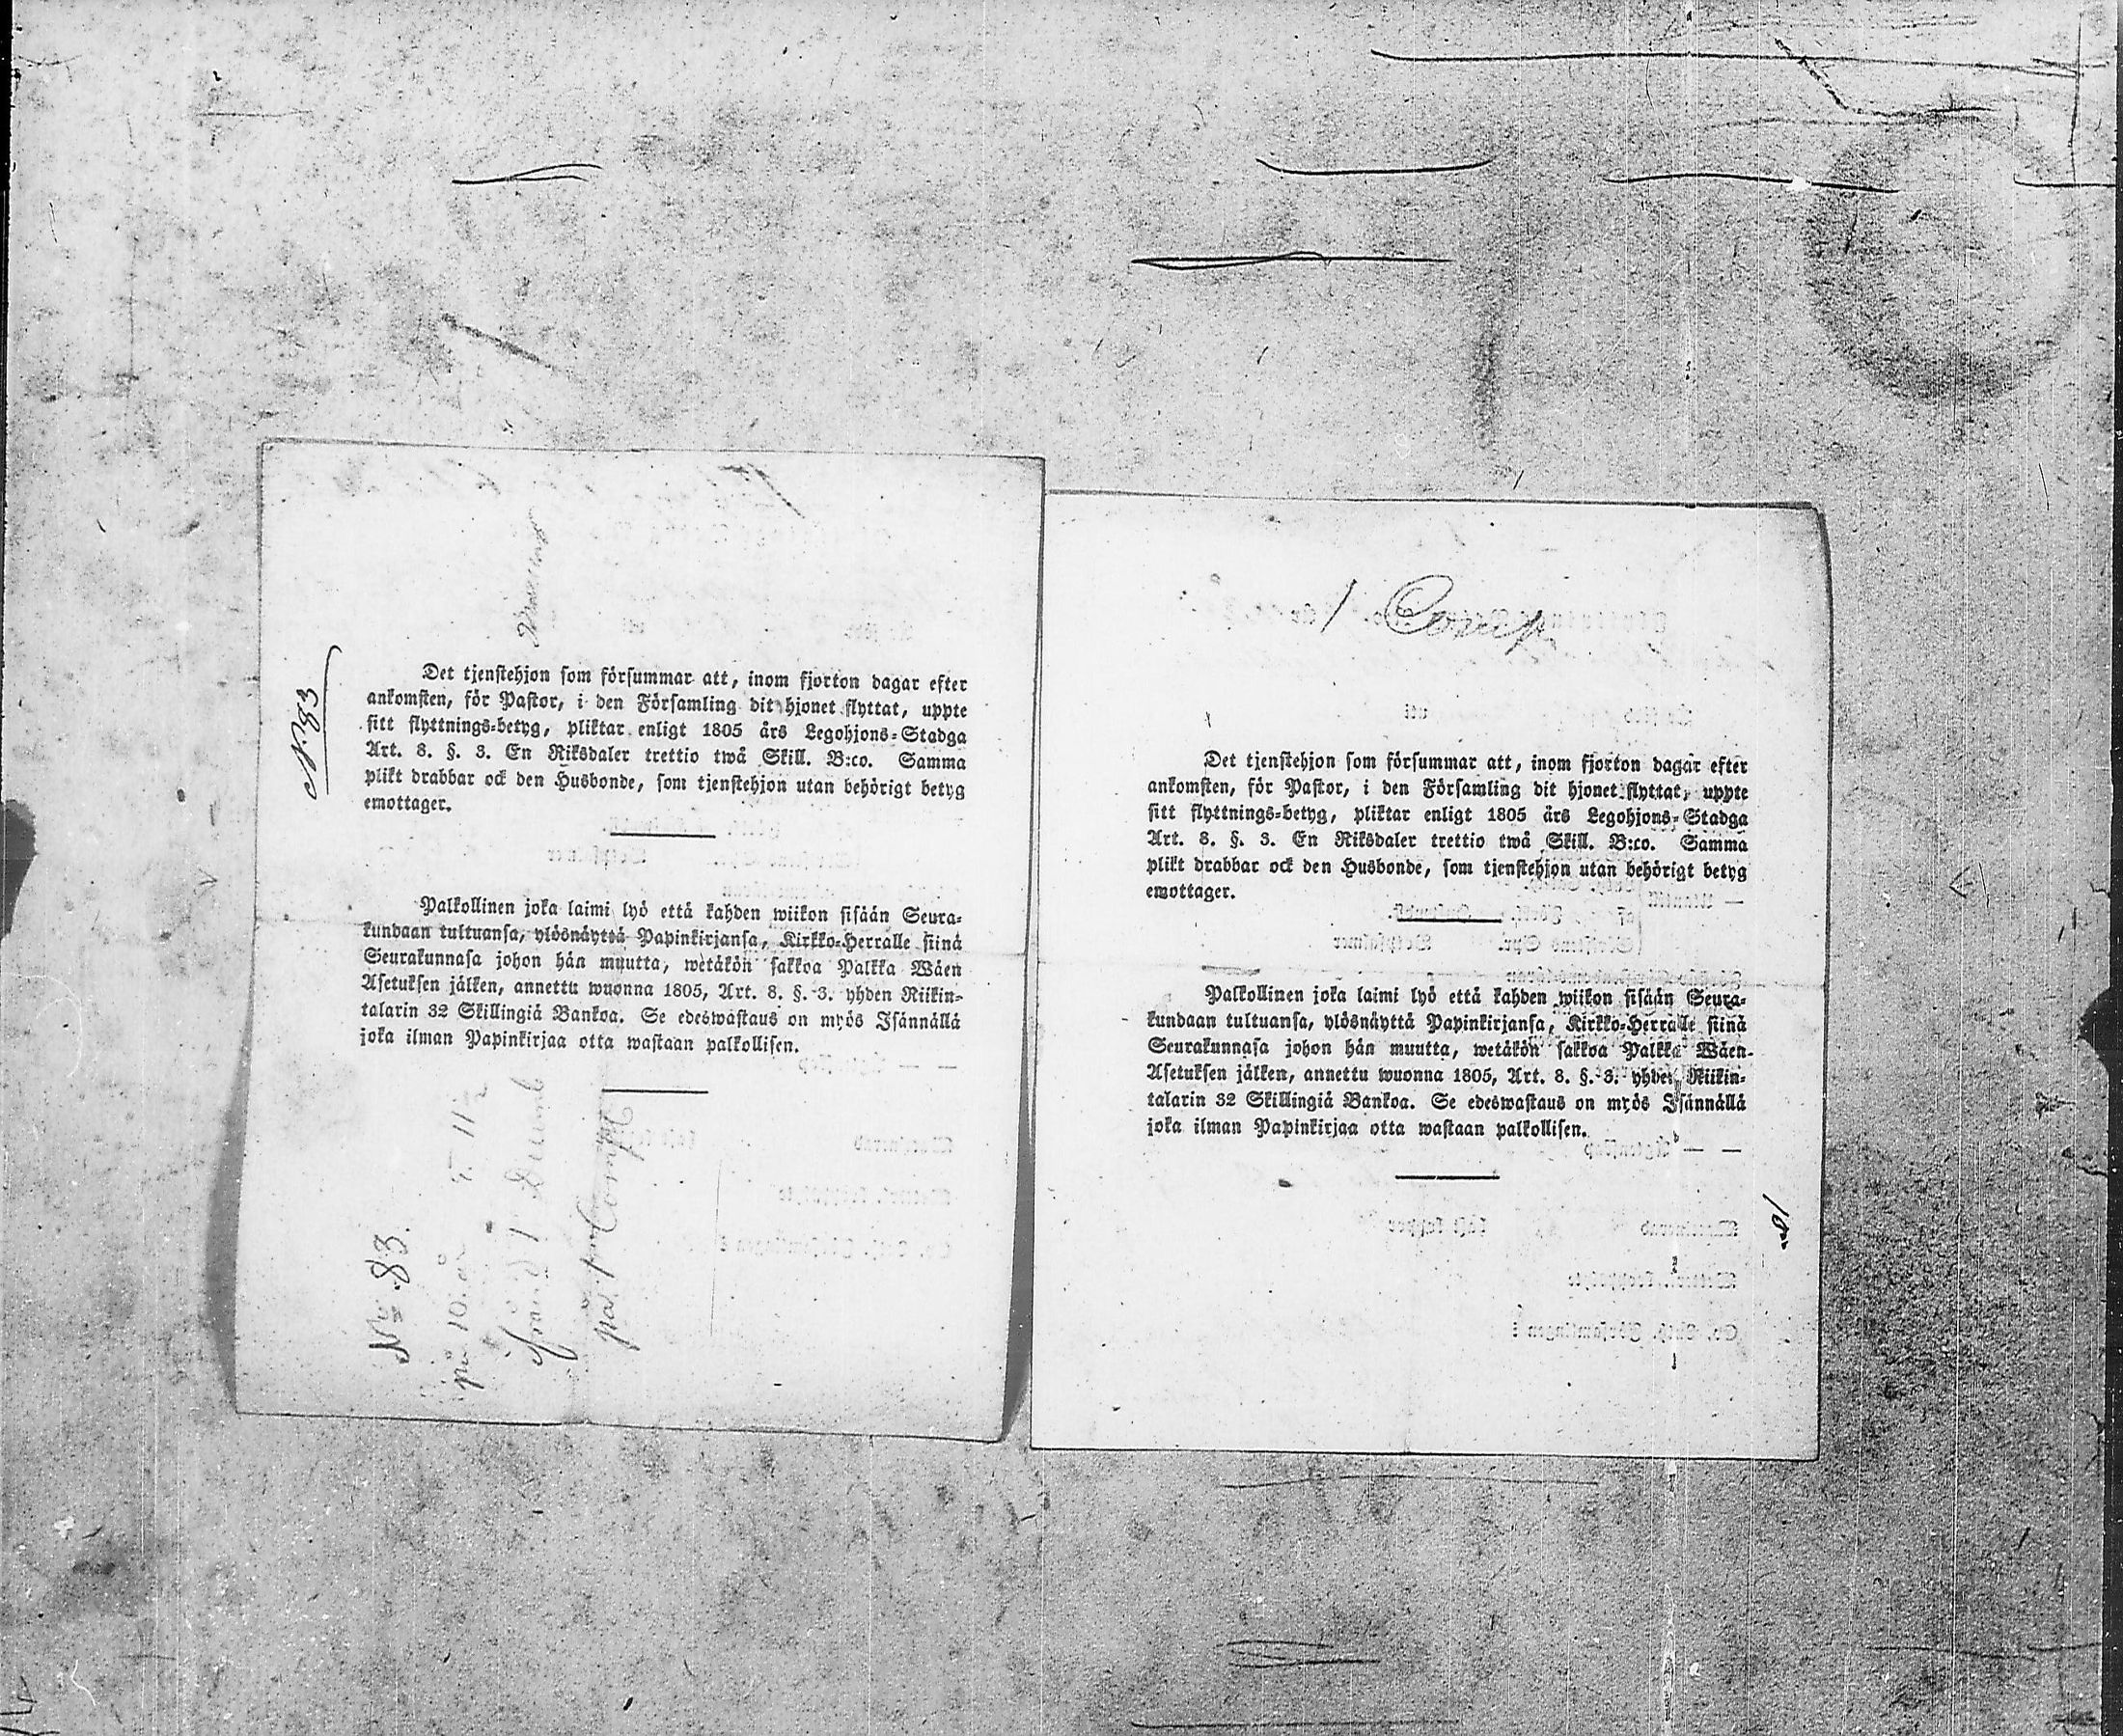 N:o 83
Det tjenstehjon som försummar att, inom fjorton dagar efter
ankomsten, för Pastor, i den Församling dit hjonet flyttat, uppte
sitt flyttnings-betyg, pliktar enligt 1805 års Legohjons-Stadga
Art. 8. §. 3. En Riksdaler trettio twå Skill. B:co. Samma
plikt drabbar ock den Husbonde, som tjenstehjon utan behörigt betyg
emottager.
Palkollinen joka laimi lyö että kahden wiikon sisään Seura-
kundaan tultuansa, ylösnäyttä Papinkirjansa, Kirkko-Herralle siinä
Seurakunnasa johon hän muutta, wetäkön sakkoa Palkka Wäen
Asetuksen jälken, annettu wuonna 1805, Art. 8. §. 3. yhden Riikin-
talarin 32 Skillingiä Bankoa. Se edeswastaus on myös Isännällä
joka ilman Papinkirjaa otta wastaan palkollisen.
No 83.
på 10. år
ifrån d 1 Decemb
1 Comp
Det tjenstehjon som försummar att, inom fjorton dagar efter
ankomsten, för Pastor, i den Församling dit hjonet flyttat, uppte
sitt flyttnings-betyg, pliktar enligt 1805 års Legohjons-Stadga
Art. 8. §. 3. En Riksdaler trettio twå Skill. B:co. Samma
plikt drabbar ock den Husbonde, som tjenstehjon utan behörigt betyg
emottager.
Palkollinen joka laimi lyö että kahden wiikon sisään Seura-
kundaan tultuansa, ylösnäyttä Papinkirjansa, Kirkko-Herralle siinä
Seurakunnasa johon hän muutta, wetäkön sakkoa Palkka Wäen-
Asetuksen jälken, annettu wuonna 1805, Art. 8. §. 3. yhden Riikin-
talarin 32 Skillingiä Bankoa. Se edeswastaus on myös Isännällä
joka ilman Papinkirjaa otta wastaan palkollisen.